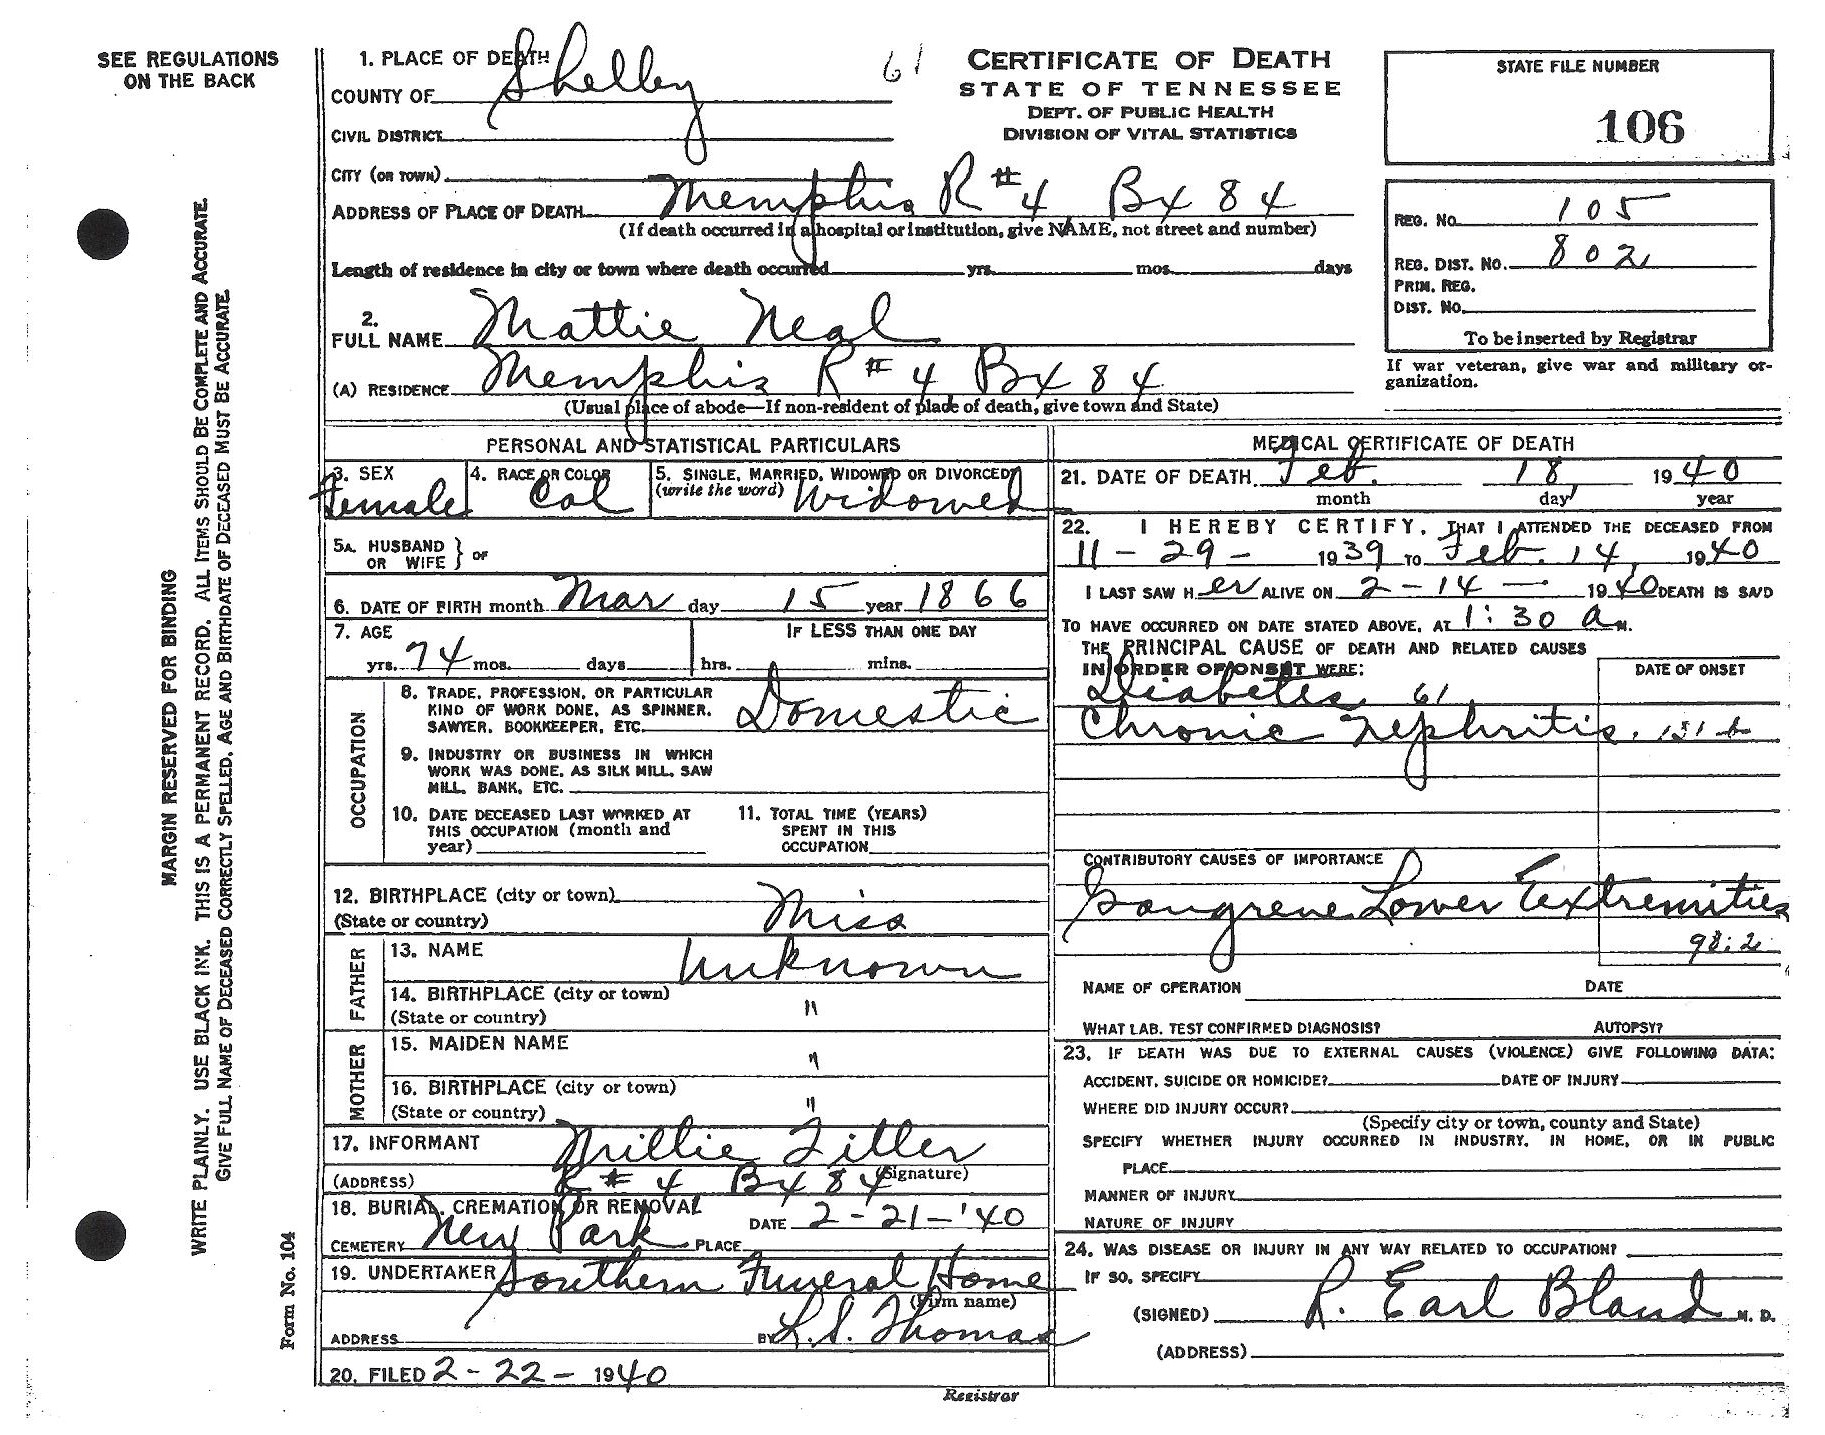 SEE REGULATIONS
ON THE BACK
MARGIN RESERVED FOR BINDING
WRITE PLAINLY. USE BLACK INK. THIS IS A PERMANENT RECORD. ALL ITEMS SHOULD BE COMPLETE AND ACCURATE.
GIVE FULL NAME OF DECEASED CORRECTLY SPELLED. AGE AND BIRTHDATE OF DECEASED MUST BE ACCURATE.
Form No. 104
61
CERTIFICATE OF DEATH
STATE OF TENNESSEE
DEPT. OF PUBLIC HEALTH
DIVISION OF VITAL STATISTICS
STATE FILE NUMBER
106
REG. No. 105
REG. DIST. No. 802
PRIM. REG.
DIST. No.
To be inserted by Registrar
If war veteran, give war and military or-
ganization.
1. PLACE OF DEATH
COUNTY OF Shelby
CIVIL DISTRICT
CITY (OR TOWN)
ADDRESS OF PLACE OF DEATH Memphis R #4 Bx 84
(If death occurred in a hospital or institution, give NAME, not street and number)
Length of residence in city or town where death occurred yrs. mos. days
2.
FULL NAME Mattie Neal
(A) RESIDENCE Memphis R #4 Bx 84
(Usual place of abode—If non-resident of place of death, give town and State)
PERSONAL AND STATISTICAL PARTICULARS
3. SEX 4. RACE OR COLOR 5. SINGLE, MARRIED, WIDOWED OR DIVORCED
Female Col (write the word) Widowed
5A. HUSBAND
OR WIFE } OF
6. DATE OF BIRTH month Mar day 15 year 1866
7. AGE IF LESS THAN ONE DAY
yrs. 74 mos. days hrs. mins.
OCCUPATION
8. TRADE, PROFESSION, OR PARTICULAR
KIND OF WORK DONE, AS SPINNER,
SAWYER, BOOKKEEPER, ETC. Domestic
9. INDUSTRY OR BUSINESS IN WHICH
WORK WAS DONE, AS SILK MILL, SAW
MILL, BANK, ETC.
10. DATE DECEASED LAST WORKED AT
THIS OCCUPATION (month and
year)
11. TOTAL TIME (YEARS)
SPENT IN THIS
OCCUPATION
12. BIRTHPLACE (city or town)
(State or country) Miss
FATHER
13. NAME Unknown
14. BIRTHPLACE (city or town)
(State or country) "
MOTHER
15. MAIDEN NAME "
16. BIRTHPLACE (city or town)
(State or country) "
17. INFORMANT Millie
(Signature)
(ADDRESS) R #4 Bx 84
18. BURIAL, CREMATION OR REMOVAL
DATE 2-21-'40
CEMETERY New Park PLACE
19. UNDERTAKER Southern Funeral Home
(Firm name)
ADDRESS BY L. S. Thomas
20. FILED 2-22-1940
Registrar
MEDICAL CERTIFICATE OF DEATH
21. DATE OF DEATH Feb. 18, 1940
month day year
22. I HEREBY CERTIFY, THAT I ATTENDED THE DECEASED FROM
11-29- 1939 TO Feb. 14, 1940
I LAST SAW HER ALIVE ON 2-14- 1940 DEATH IS SAID
TO HAVE OCCURRED ON DATE STATED ABOVE, AT 1:30 a M.
THE PRINCIPAL CAUSE OF DEATH AND RELATED CAUSES
IN ORDER OF ONSET WERE: DATE OF ONSET
Diabetes 61
Chronic Nephritis. 131 b
CONTRIBUTORY CAUSES OF IMPORTANCE
Gangrene Lower Extremities
98:2
NAME OF OPERATION DATE
WHAT LAB. TEST CONFIRMED DIAGNOSIS? AUTOPSY?
23. IF DEATH WAS DUE TO EXTERNAL CAUSES (VIOLENCE) GIVE FOLLOWING DATA:
ACCIDENT, SUICIDE OR HOMICIDE? DATE OF INJURY
WHERE DID INJURY OCCUR?
(Specify city or town, county and State)
SPECIFY WHETHER INJURY OCCURRED IN INDUSTRY, IN HOME, OR IN PUBLIC
PLACE
MANNER OF INJURY
NATURE OF INJURY
24. WAS DISEASE OR INJURY IN ANY WAY RELATED TO OCCUPATION?
IF SO, SPECIFY
(SIGNED) R. Earl Bland M. D.
(ADDRESS)